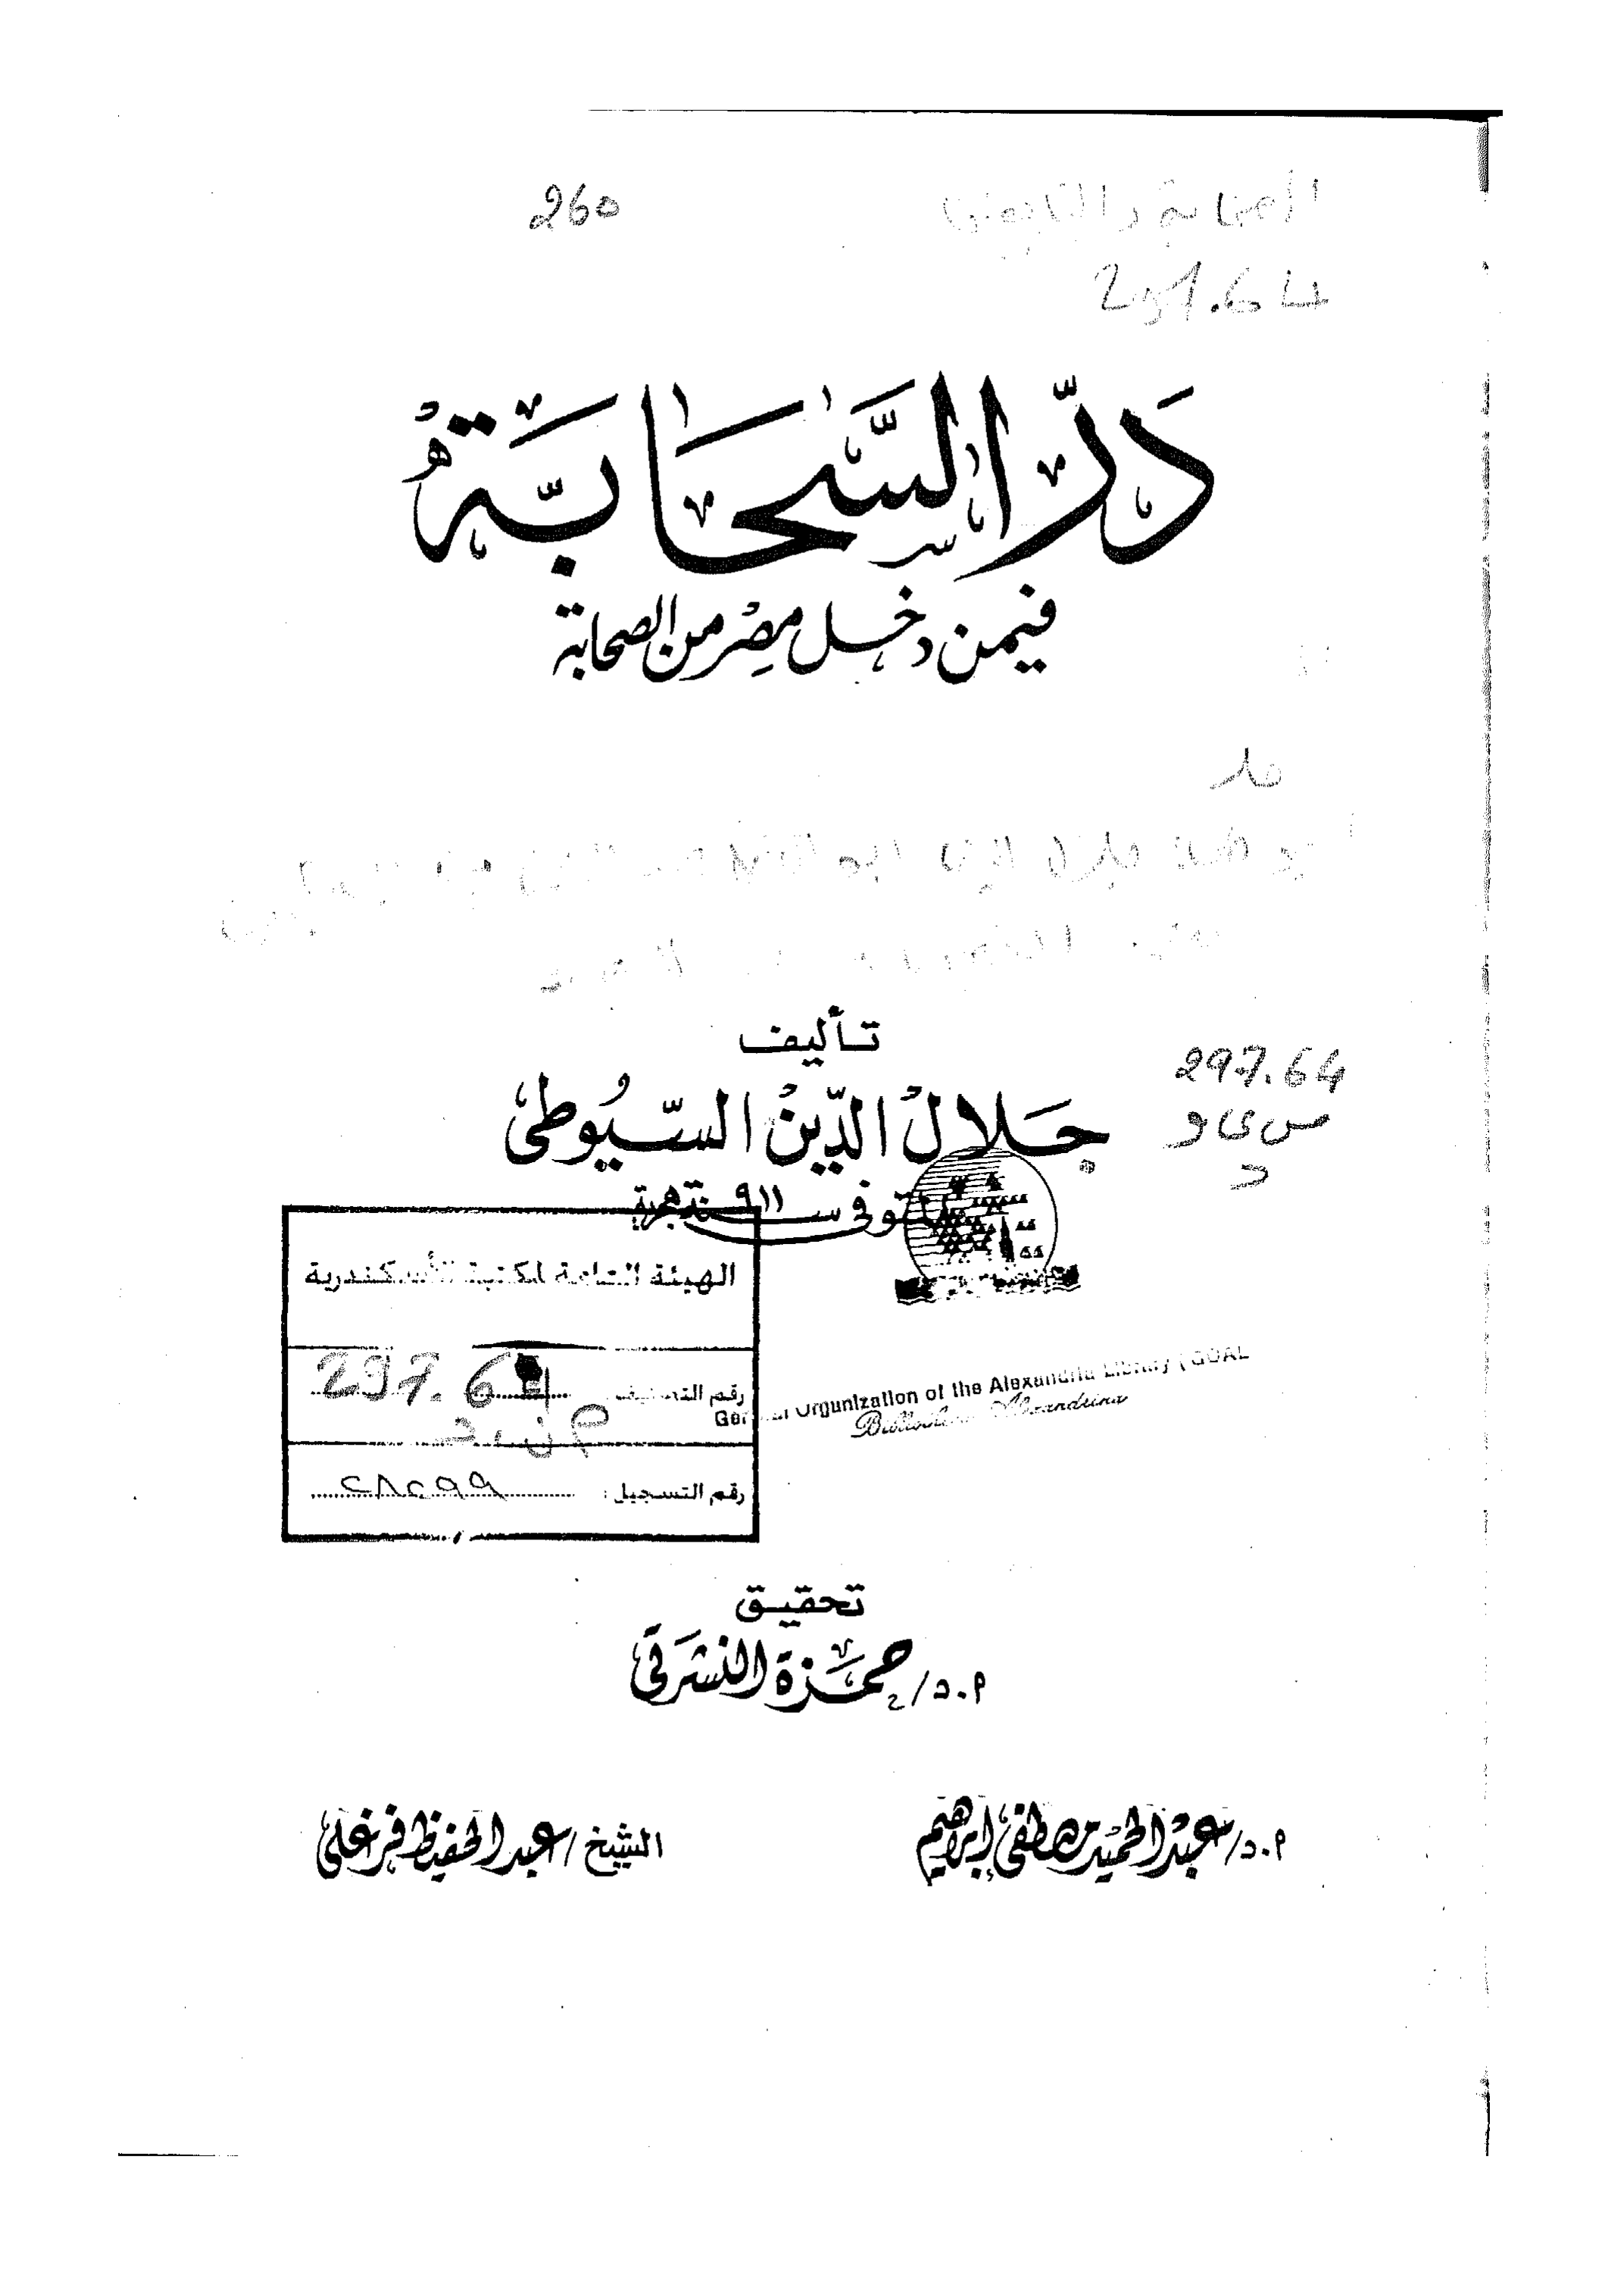 260
الصحابة والتابعون
297.64
دَرّ السَّحَابَة
فيمن دخل مصر من الصحابة
تأليف
جَلالُ الدِّينْ السّيُوطى
297.64
س ى و
د
المتوفى سنة ٩١١ هجرية
الهيئة العامة لمكتبة الأسكندرية
رقم التصنيف: 297.64
رقم التسجيل: ٢٨٢٩٩
General Organization of the Alexandria Library (GOAL
Bibliotheca Alexandrina
تحقيق
ا.د/حمزة النشرتى
ا.د/عبد الحميد مصطفى إبراهيم
الشيخ/عبد الحفيظ فرغلى